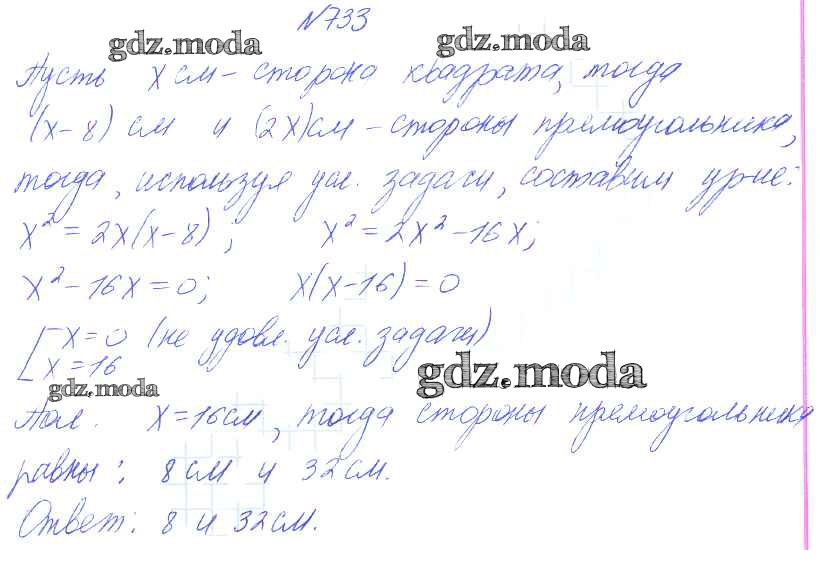 №733
gdz.moda gdz.moda
Пусть x см - сторона квадрата, тогда
(x-8) см и (2x)см - стороны прямоугольника,
тогда, используя усл. задачи, составим ур-ие:
x² = 2x(x-8); x² = 2x² - 16x;
x² - 16x = 0; x(x-16) = 0
[x = 0 (не удовл. усл. задачи)
x = 16
gdz.moda gdz.moda
Пол. x = 16см, тогда стороны прямоугольника
равны: 8 см и 32 см.
Ответ: 8 и 32 см.